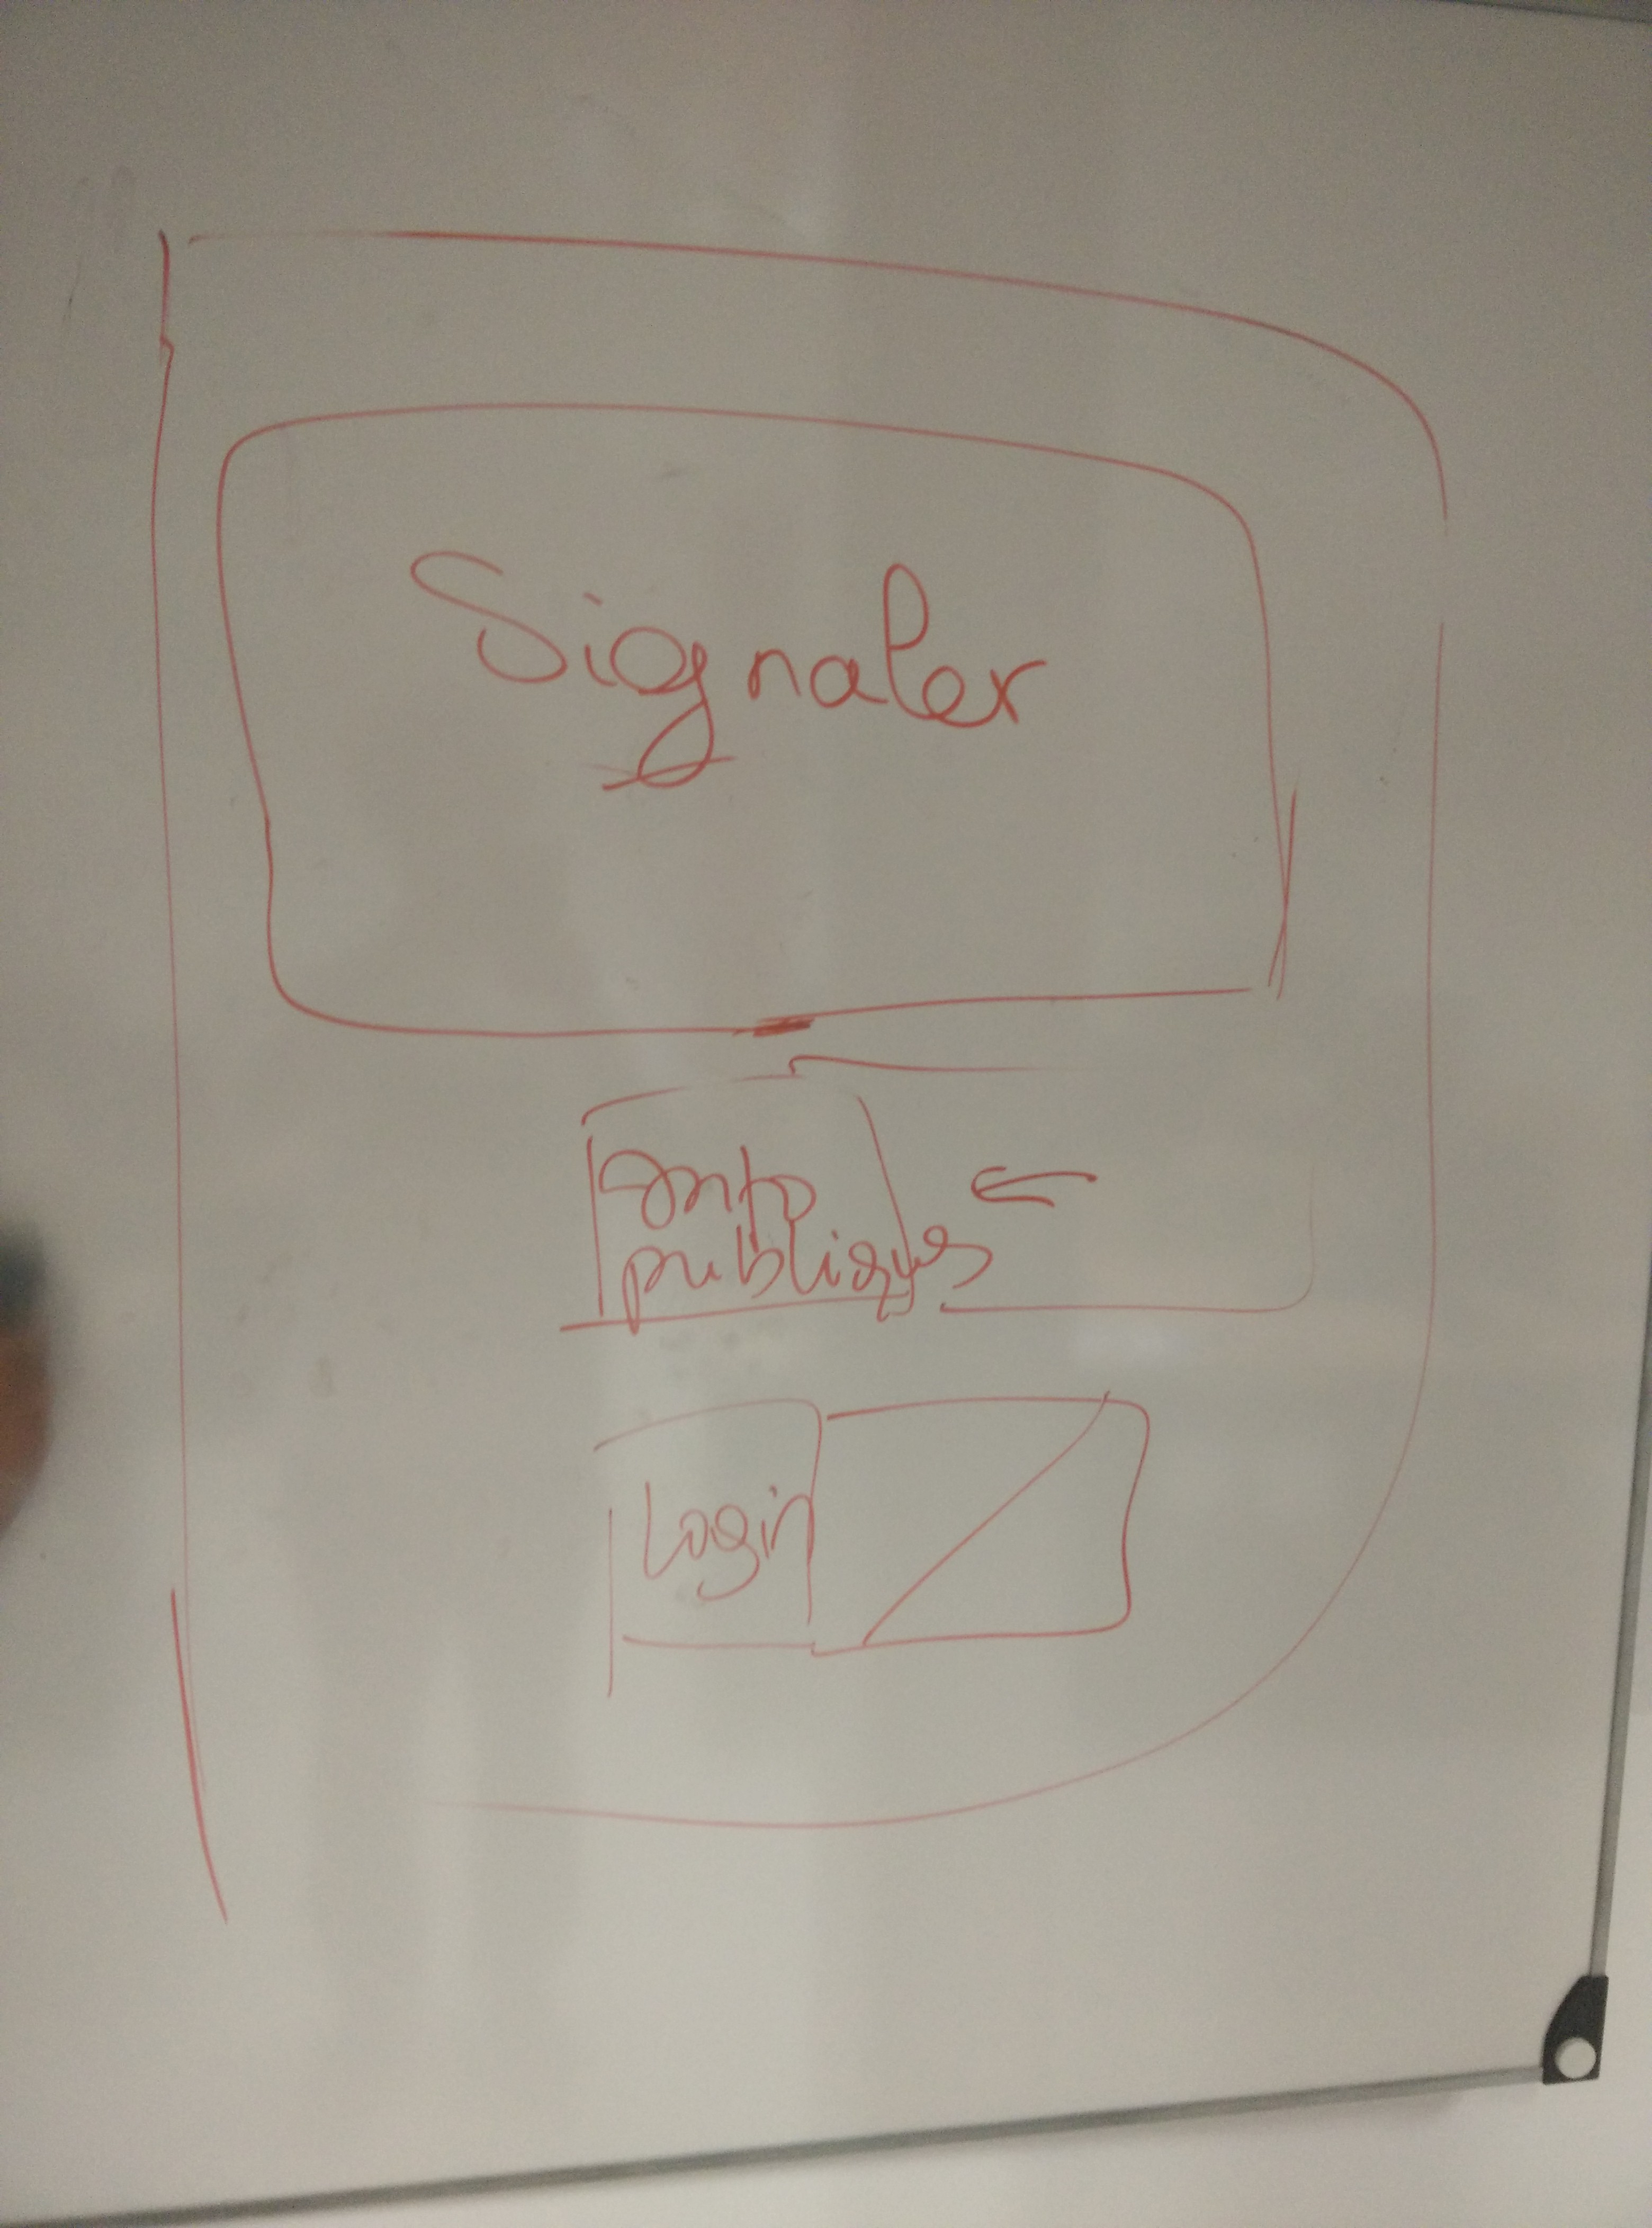 Signaler
Info
publiques
Login